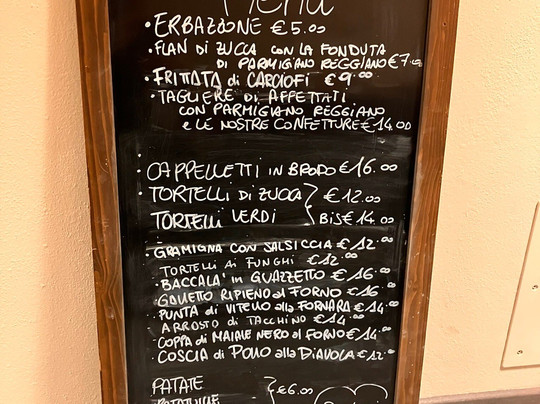 Menù
• ERBAZZONE €5.00
• FLAN DI ZUCCA CON LA FONDUTA
DI PARMIGIANO REGGIANO €7.00
• FRITTATA di CARCIOFI €9.00
• TAGLIERE DI AFFETTATI
CON PARMIGIANO REGGIANO
e LE NOSTRE CONFETTURE €14.00
• CAPPELLETTI IN BRODO €16.00
• TORTELLI DI ZUCCA } €12.00
TORTELLI VERDI BIS €14.00
• GRAMIGNA CON SALSICCIA €12.00
TORTELLI AI FUNGHI €12.00
• BACCALA' in GUAZZETTO €16.00
GALLETTO RIPIENO al FORNO €16.00
PUNTA DI VITELLO alla FORNARA €14.00
ARROSTO DI TACCHINO €14.00
COPPA di MAIALE NERO al FORNO €14.00
COSCIA di POLLO alla DIAVOLA €12.00
PATATE } €6.00